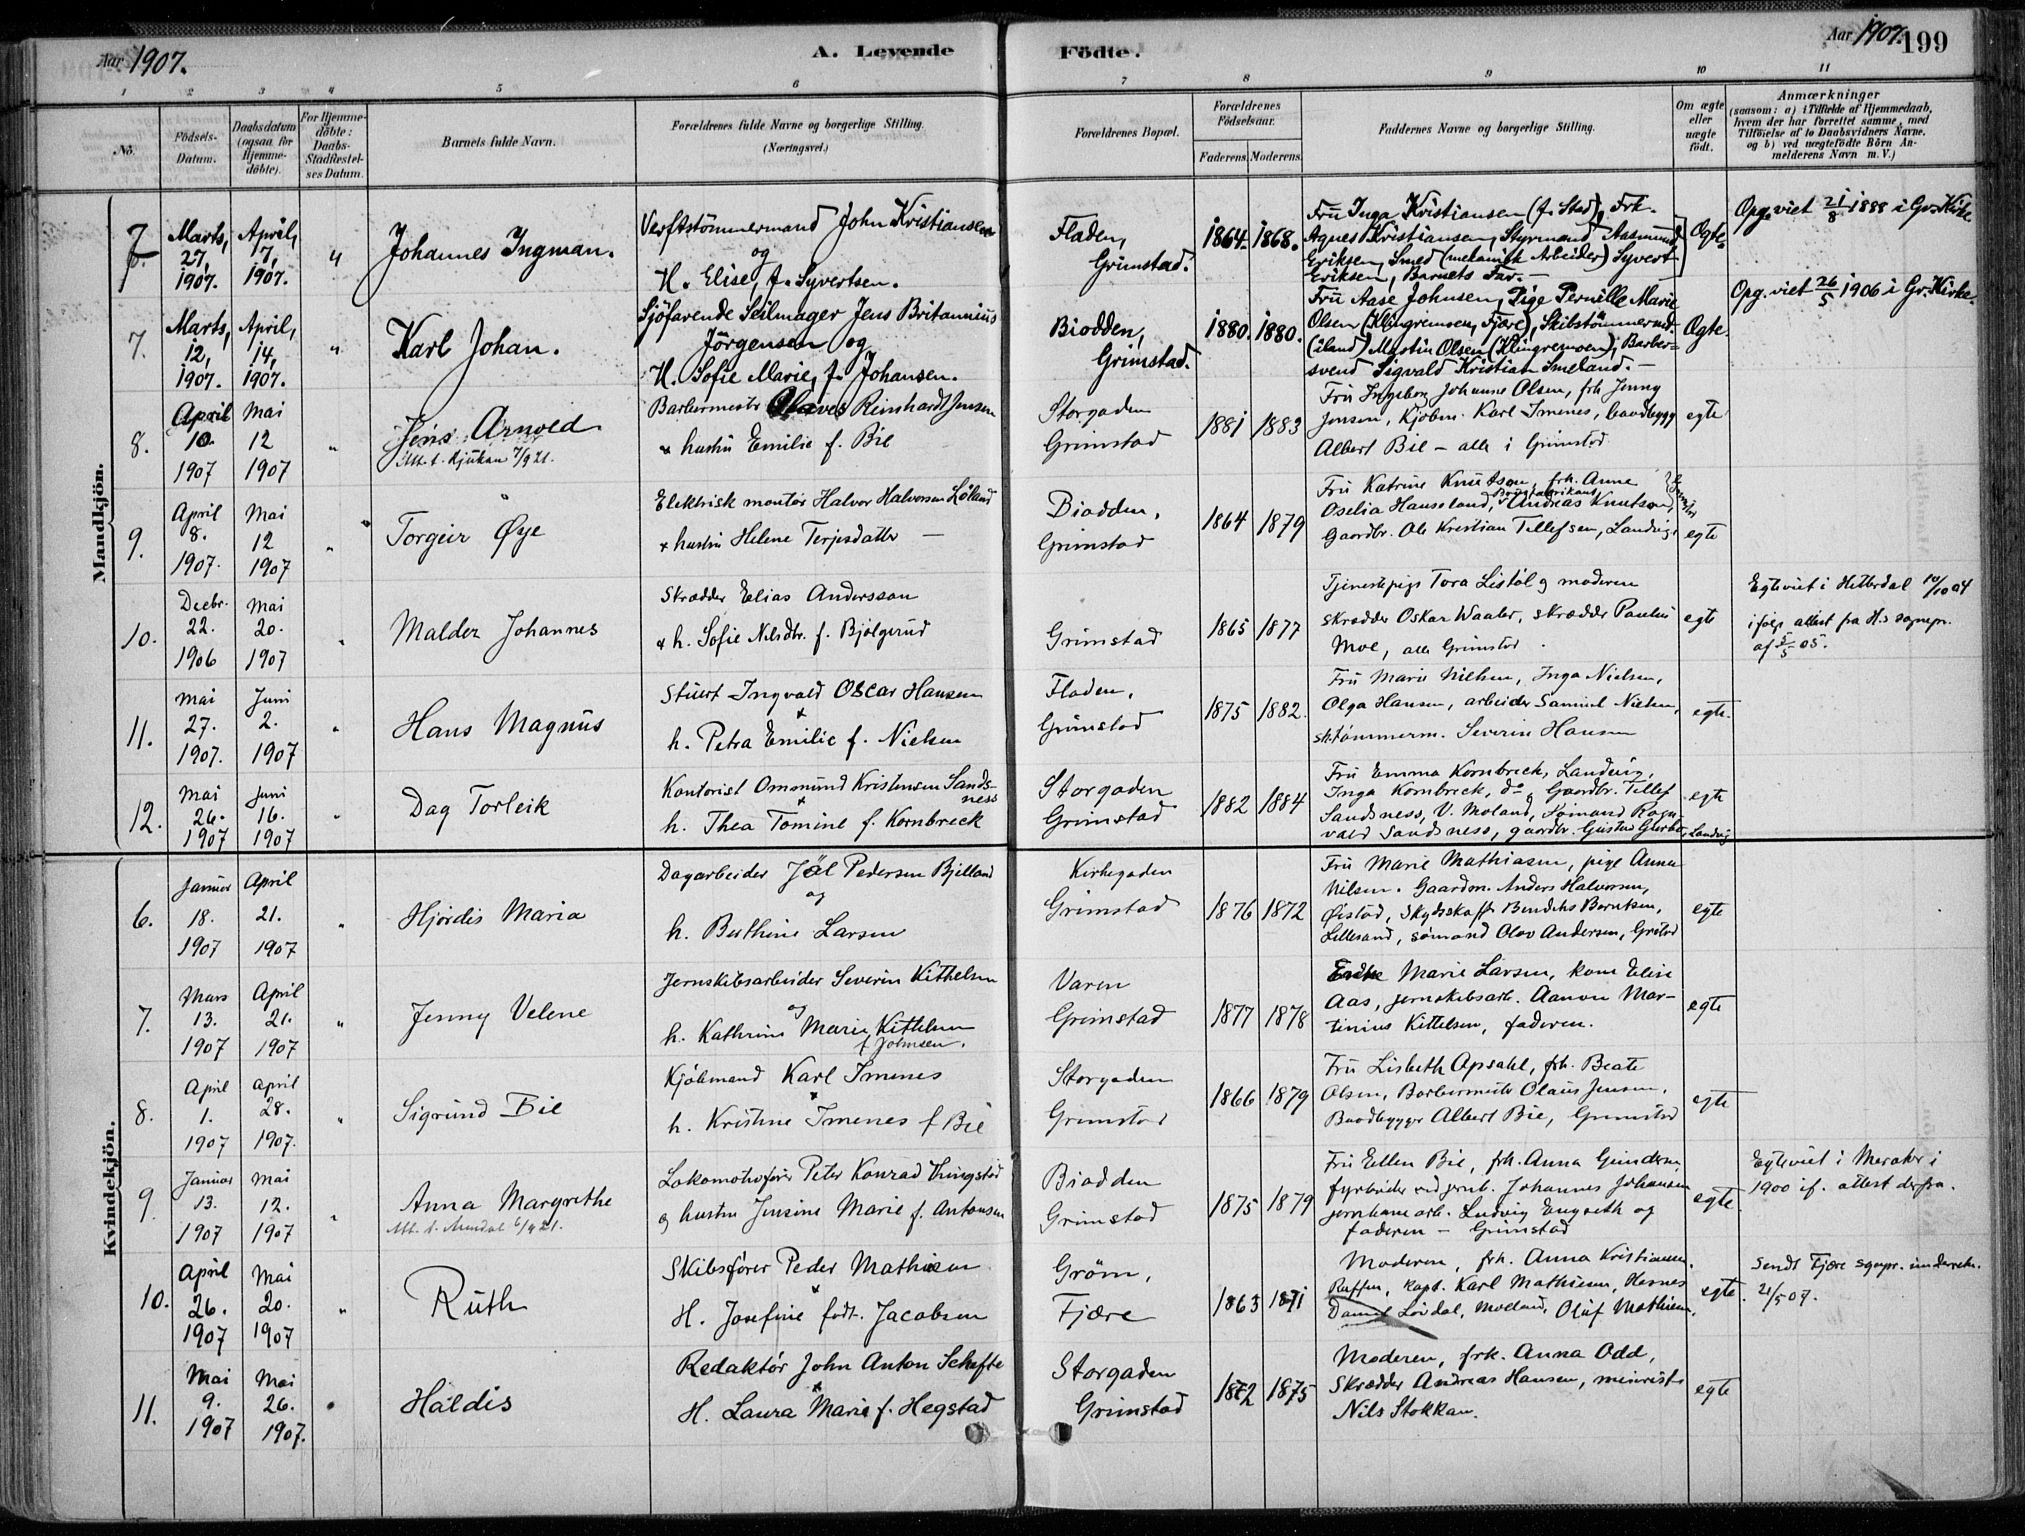 Aar 1907.
A. Levende
Födte.
Aar 1907. 199
1 2 3 4 5 6 7 8 9 10 11
No.
Födsels-Datum.
Daabsdatum (ogsaa for Hjemme-döbte).
For Hjemme-döbte: Daabs-Stadfæstel-ses Datum.
Barnets fulde Navn.
Forældrenes fulde Navne og borgerlige Stilling.
(Næringsvei.)
Forældrenes Bopæl.
Forældrenes Födselsaar.
Faderens. Moderens.
Faddernes Navne og borgerlige Stilling.
Om ægte eller uægte födt.
Anmærkninger
(saasom: a) i Tilfælde af Hjemmedaab,
hvem der har forrettet samme, med
Tilföielse af to Daabsvidners Navne.
og b) ved uægtefödte Börn An-
melderens Navn m. V.)
Mandkjön.
7.
Marts, 27, 1907.
April, 7, 1907.
"
Johannes Ingman.
Verftstömmermand John Kristiansen
og
H. Elise, f. Syvertsen.
Fladen,
Grimstad.
1864. 1868.
Fru Inga Kristiansen (f. Stad), Frk.
Agnes Kristiansen, Styrmand Aasmund
Eriksen, Smed (mekanisk Arbeider) Syvert
Eriksen, Barnets Far. –
Ægte.
Opg. viet 21/8 1888 i Gr. Kirke
7.
Marts, 12, 1907.
April, 14, 1907.
"
Karl Johan.
Sjöfarende Seilmager Jens Britannius
Jörgensen og
H. Sofie Marie, f. Johansen.
Biodden,
Grimstad.
1880. 1880.
Fru Aase Johnsen, Pige Pernille Marie
Olsen (Klingremoen, Fjære), Skibstömmermd.
(iland) Martin Olsen (Klingremoen), Barber=
svend Sigvald Kristian Imeland. –
Ægte.
Opg. viet 26/5 1906 i Gr. Kirke.
8.
April 10. 1907
Mai 12 1907
"
Jens Arnold
Att. t. Rjukan 7/9 21.
Barbermester Olaves Reinhardt Jensen
& hustru Emilie f. Bie
Storgaden
Grimstad
1881 1883
Fru Ingeborg Johanne Olsen, frk Jenny
Jensen, Kjøbm. Karl Imenes, baadbygg
Albert Bie – alle i Grimstad
egte
9.
April 8. 1907.
Mai 12 1907
"
Torgeir Øye
Elektrisk montør Halvor Halvorsen Løland
& hustru Helene Terjesdatter –
Biodden,
Grimstad
1864 1879
Fru Katrine Knutson, frk. Anne
Oselia Haussland, Andreas Knutson,
Gaardbr. Ole Kristian Tellefsen, Landvig.
egte
10.
Decbr. 22. 1906
Mai 20. 1907
"
Malder Johannes
Skrædder Elias Andersson
& h. Sofie Nilsdtr. f. Bjølgerud
Grimstad
1865 1877
Tjenestepige Tora Listöl og moderen
skrædder Oskar Waaler, skrædder Paulus
Moe, alle Grimstad.
egte
Egteviet i Hitterdal 10/10 04
ifølg. attest fra H.s sognepr.
af 5/5 05.
11.
Mai 27. 1907.
Juni 2. 1907
"
Hans Magnus
Stuert Ingvald Oscar Hansen
&
h. Petra Emilie f. Nielsen
Fladen,
Grimstad
1875 1882.
Fru Marie Nielsen, Inga Nielsen,
Olga Hansen, arbeider Samuel Nielsen,
sk.tømmerm. Severin Hansen
egte.
12.
Mai 26. 1907
Juni 16. 1907
"
Dag Torleik
Kontorist Ommund Kristensen Sands-
ness
&
h. Thea Tomine f. Kornbreck
Storgaden
Grimstad
1882 1884
Fru Emma Kornbreck, Landvig,
Inga Kornbreck, do, Gaardbr. Tellef
Sandsness, V. Moland, Sømand Ragn-
vald Sandsness, gaardbr. Gustav Landvig
egte
Kvindekjön.
6.
Januar 18. 1907
April 21. 1907
"
Hjördis Maria
Dagarbeider Joël Pedersen Bjelland
og
h. Berthine Larsen
Kirkegaden
Grimstad
1876 1872
Fru Marie Mathiasen, pige Anna
Nilsen. Gaardm. Anders Halvorsen,
Øistad, Skydsskaff Bendiks Berntsen,
Lillesand, sømand Olav Andersen, Grstad
egte
7.
Mars 13. 1907
April 21. 1907
"
Jenny Velene
Jernskibsarbeider Severin Kittelsen
og
h. Kathrine Marie Kittelsen
f Johnsen.
Varen
Grimstad
1877 1878
Marie Larsen, kone Elise
Aas, jernskibsarb. Aanon Mar-
tinius Kittelsen, faderen.
egte
8.
April 1. 1907
April 28. 1907.
"
Sigrund Bie
Kjöbmand Karl Imenes
&
h. Kristine Imenes f Bie
Storgaden
Grimstad
1866 1879
Fru Lisbeth Apsahl, frk. Beate
Olsen, Barbermester Olaus Jensen,
Baadbygger Albert Bie, Grimstad
egte
9.
Januar 13. 1907
Mai 12. 1907
"
Anna Margrethe
Att. t. Arendal 6/4 21.
Lokomotivfører Peter Konrad Vingstad
og hustru Jensine Marie f. Antonsen
Biodden
Grimstad
1875 1879
Fru Ellen Bie, frk. Anna Gundersen,
fyrbøder ved jernb. Johannes Johansen
jernbanearb. Ludvig Engseth og
faderen – Grimstad
egte.
Egteviet i Meraker i
1900 if. attest derfra.
10.
April 26. 1907
Mai 20. 1907
"
Ruth
Skibsfører Peder Mathisen
&
H. Josefine født. Jacobsen
Grøm,
Fjære
1863 1871
Moderen, frk. Anna Kristiansen,
kapt. Karl Mathiesen, Hesnes
Daniel Løvdal, Moland, Oluf Mathisen.
egte.
Sendt Fjære sognpr. underretn.
21/5 07.
11.
Mai 9. 1907
Mai 26. 1907.
"
Haldis
Redaktør John Anton Schefte
&
H. Laura Marie f. Hegstad
Storgaden
Grimstad
1872 1875
Moderen, frk. Anna Odd,
Skrædder Andreas Hansen,
Nils Stokkan.
egte